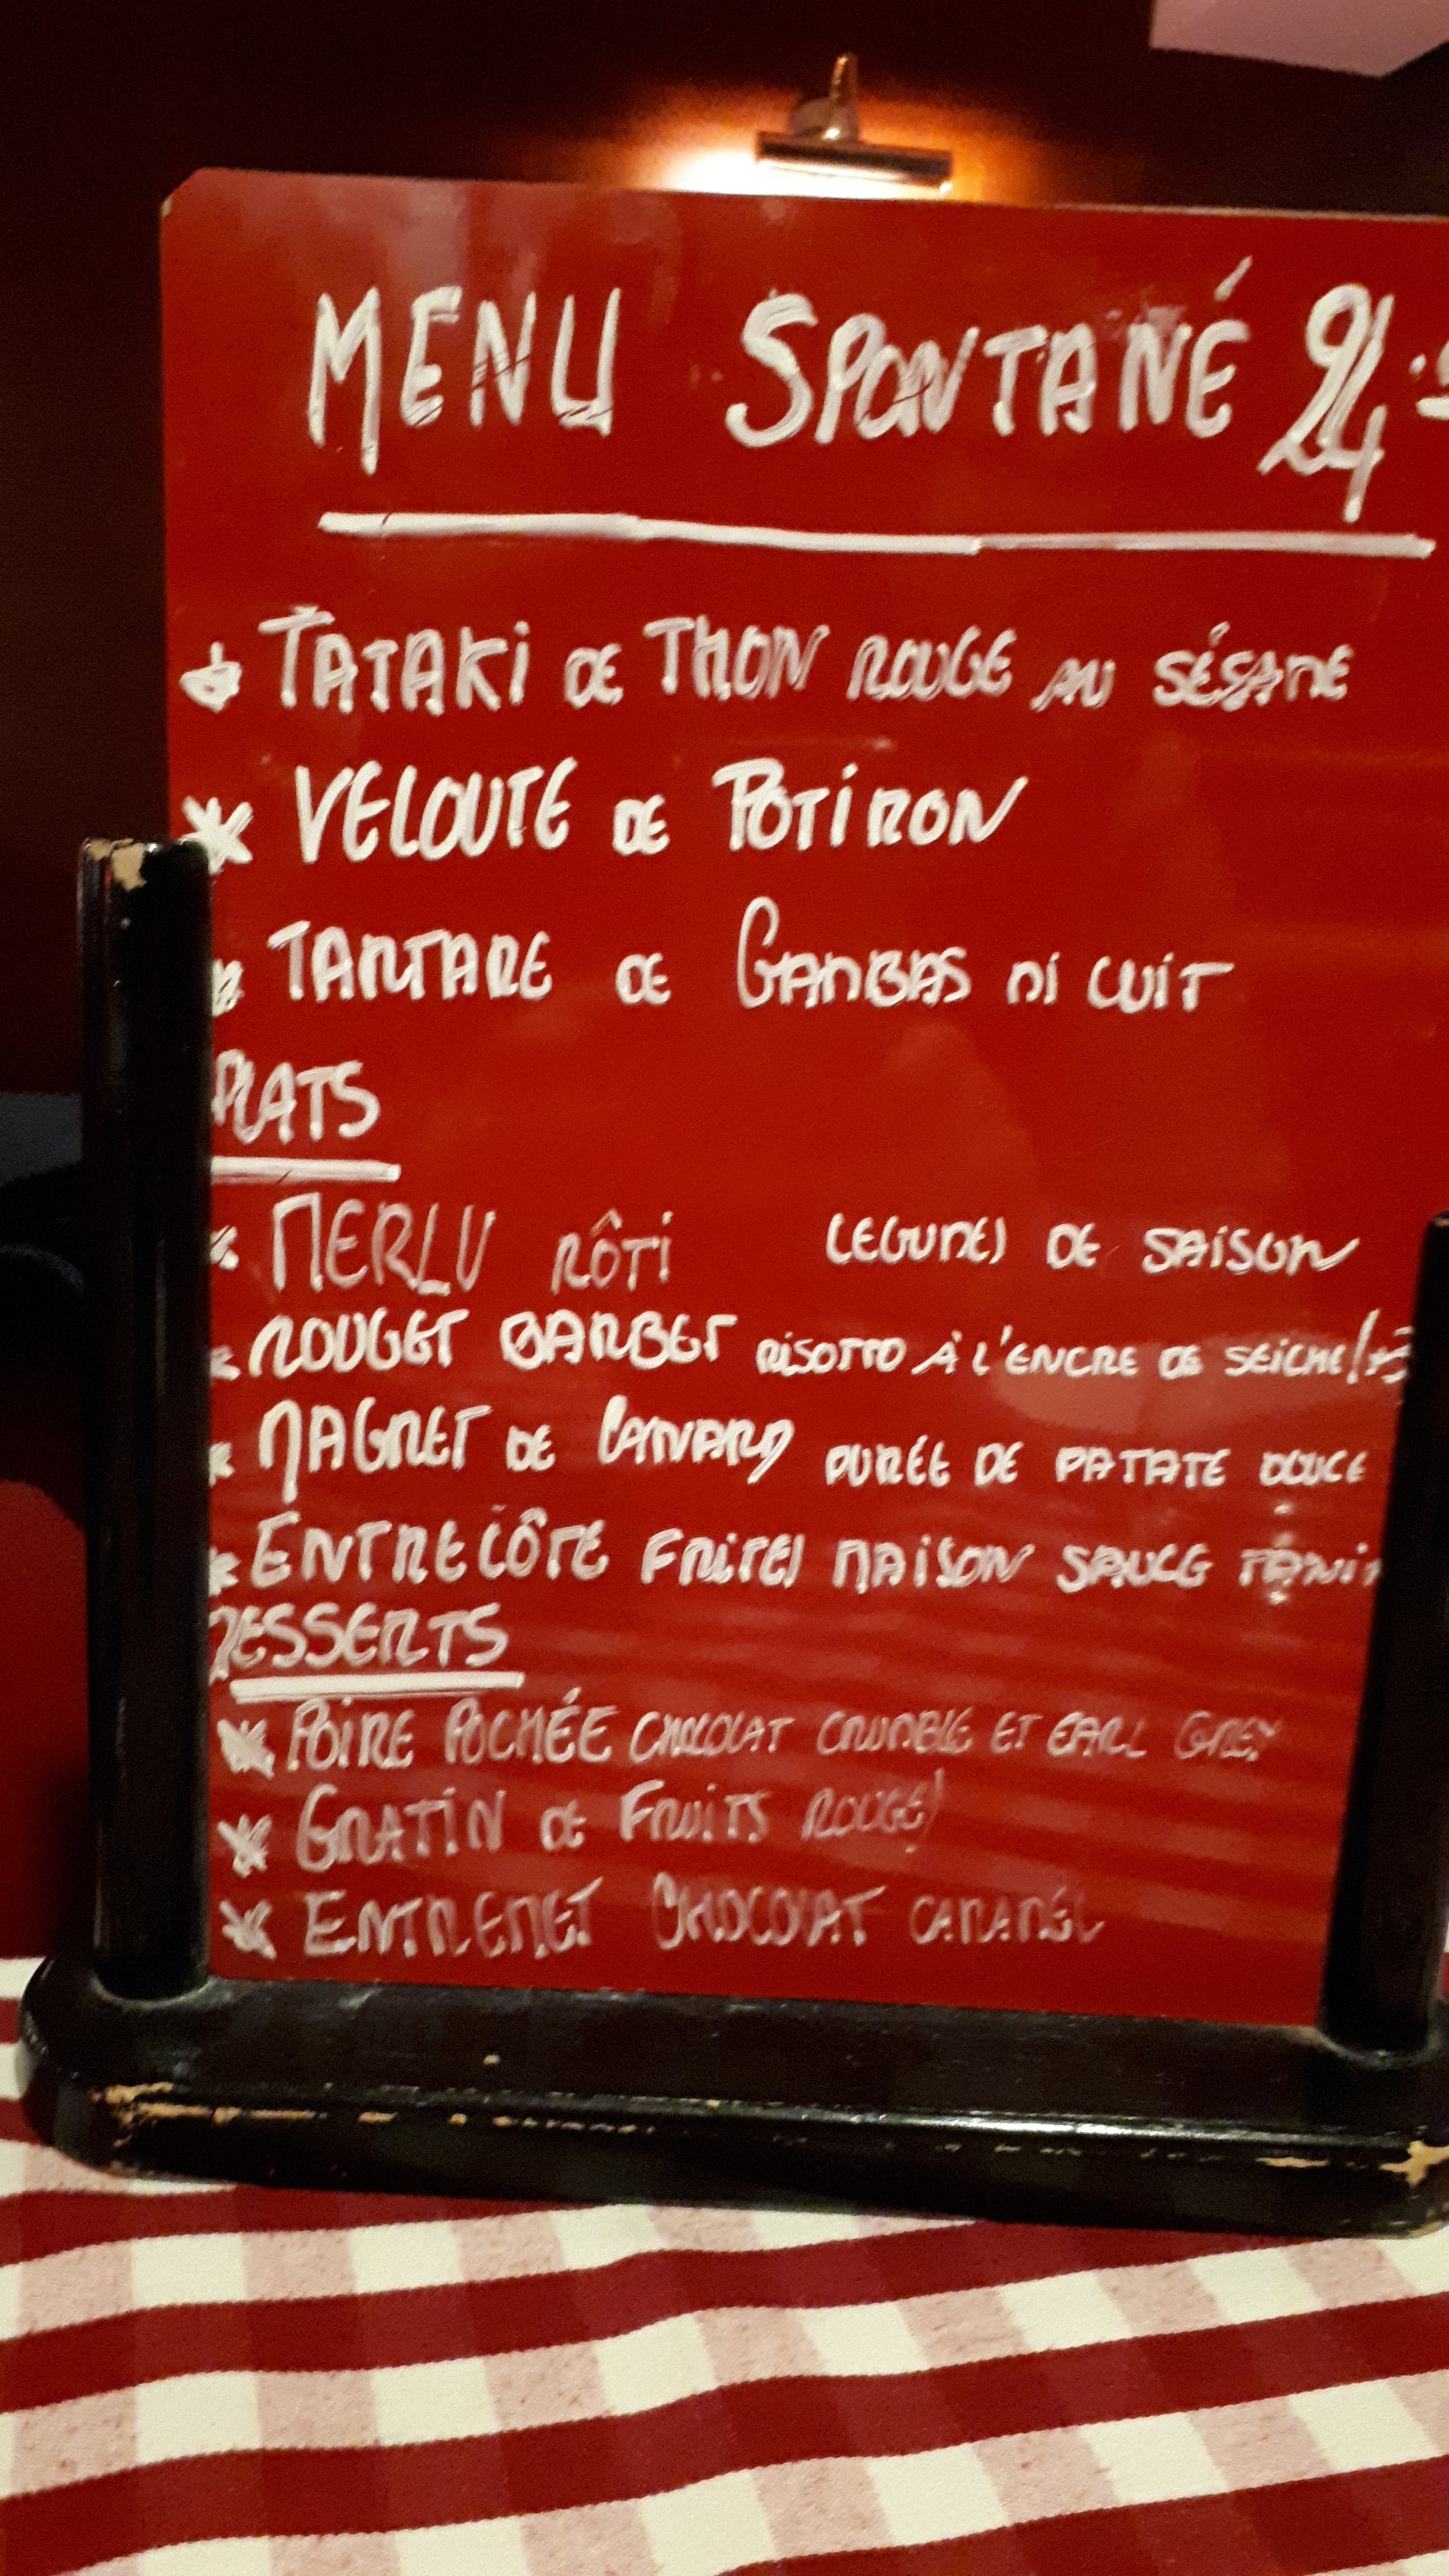 MENU SPONTANÉ 24
TATAKI DE THON ROUGE AU SÉSAME
VELOUTE DE POTIRON
TARTARE DE GAMBAS MI CUIT
PLATS
MERLU RÔTI LEGUMES DE SAISON
ROUGET BARBET RISOTTO À L'ENCRE DE SEICHE
MAGRET DE CANARD PURÉE DE PATATE DOUCE
ENTRECÔTE FRITES MAISON SAUCE
DESSERTS
POIRE POCHÉE CHOCOLAT CRUMBLE ET EARL GREY
GRATIN DE FRUITS ROUGES
ENTREMET CHOCOLAT CARAMEL